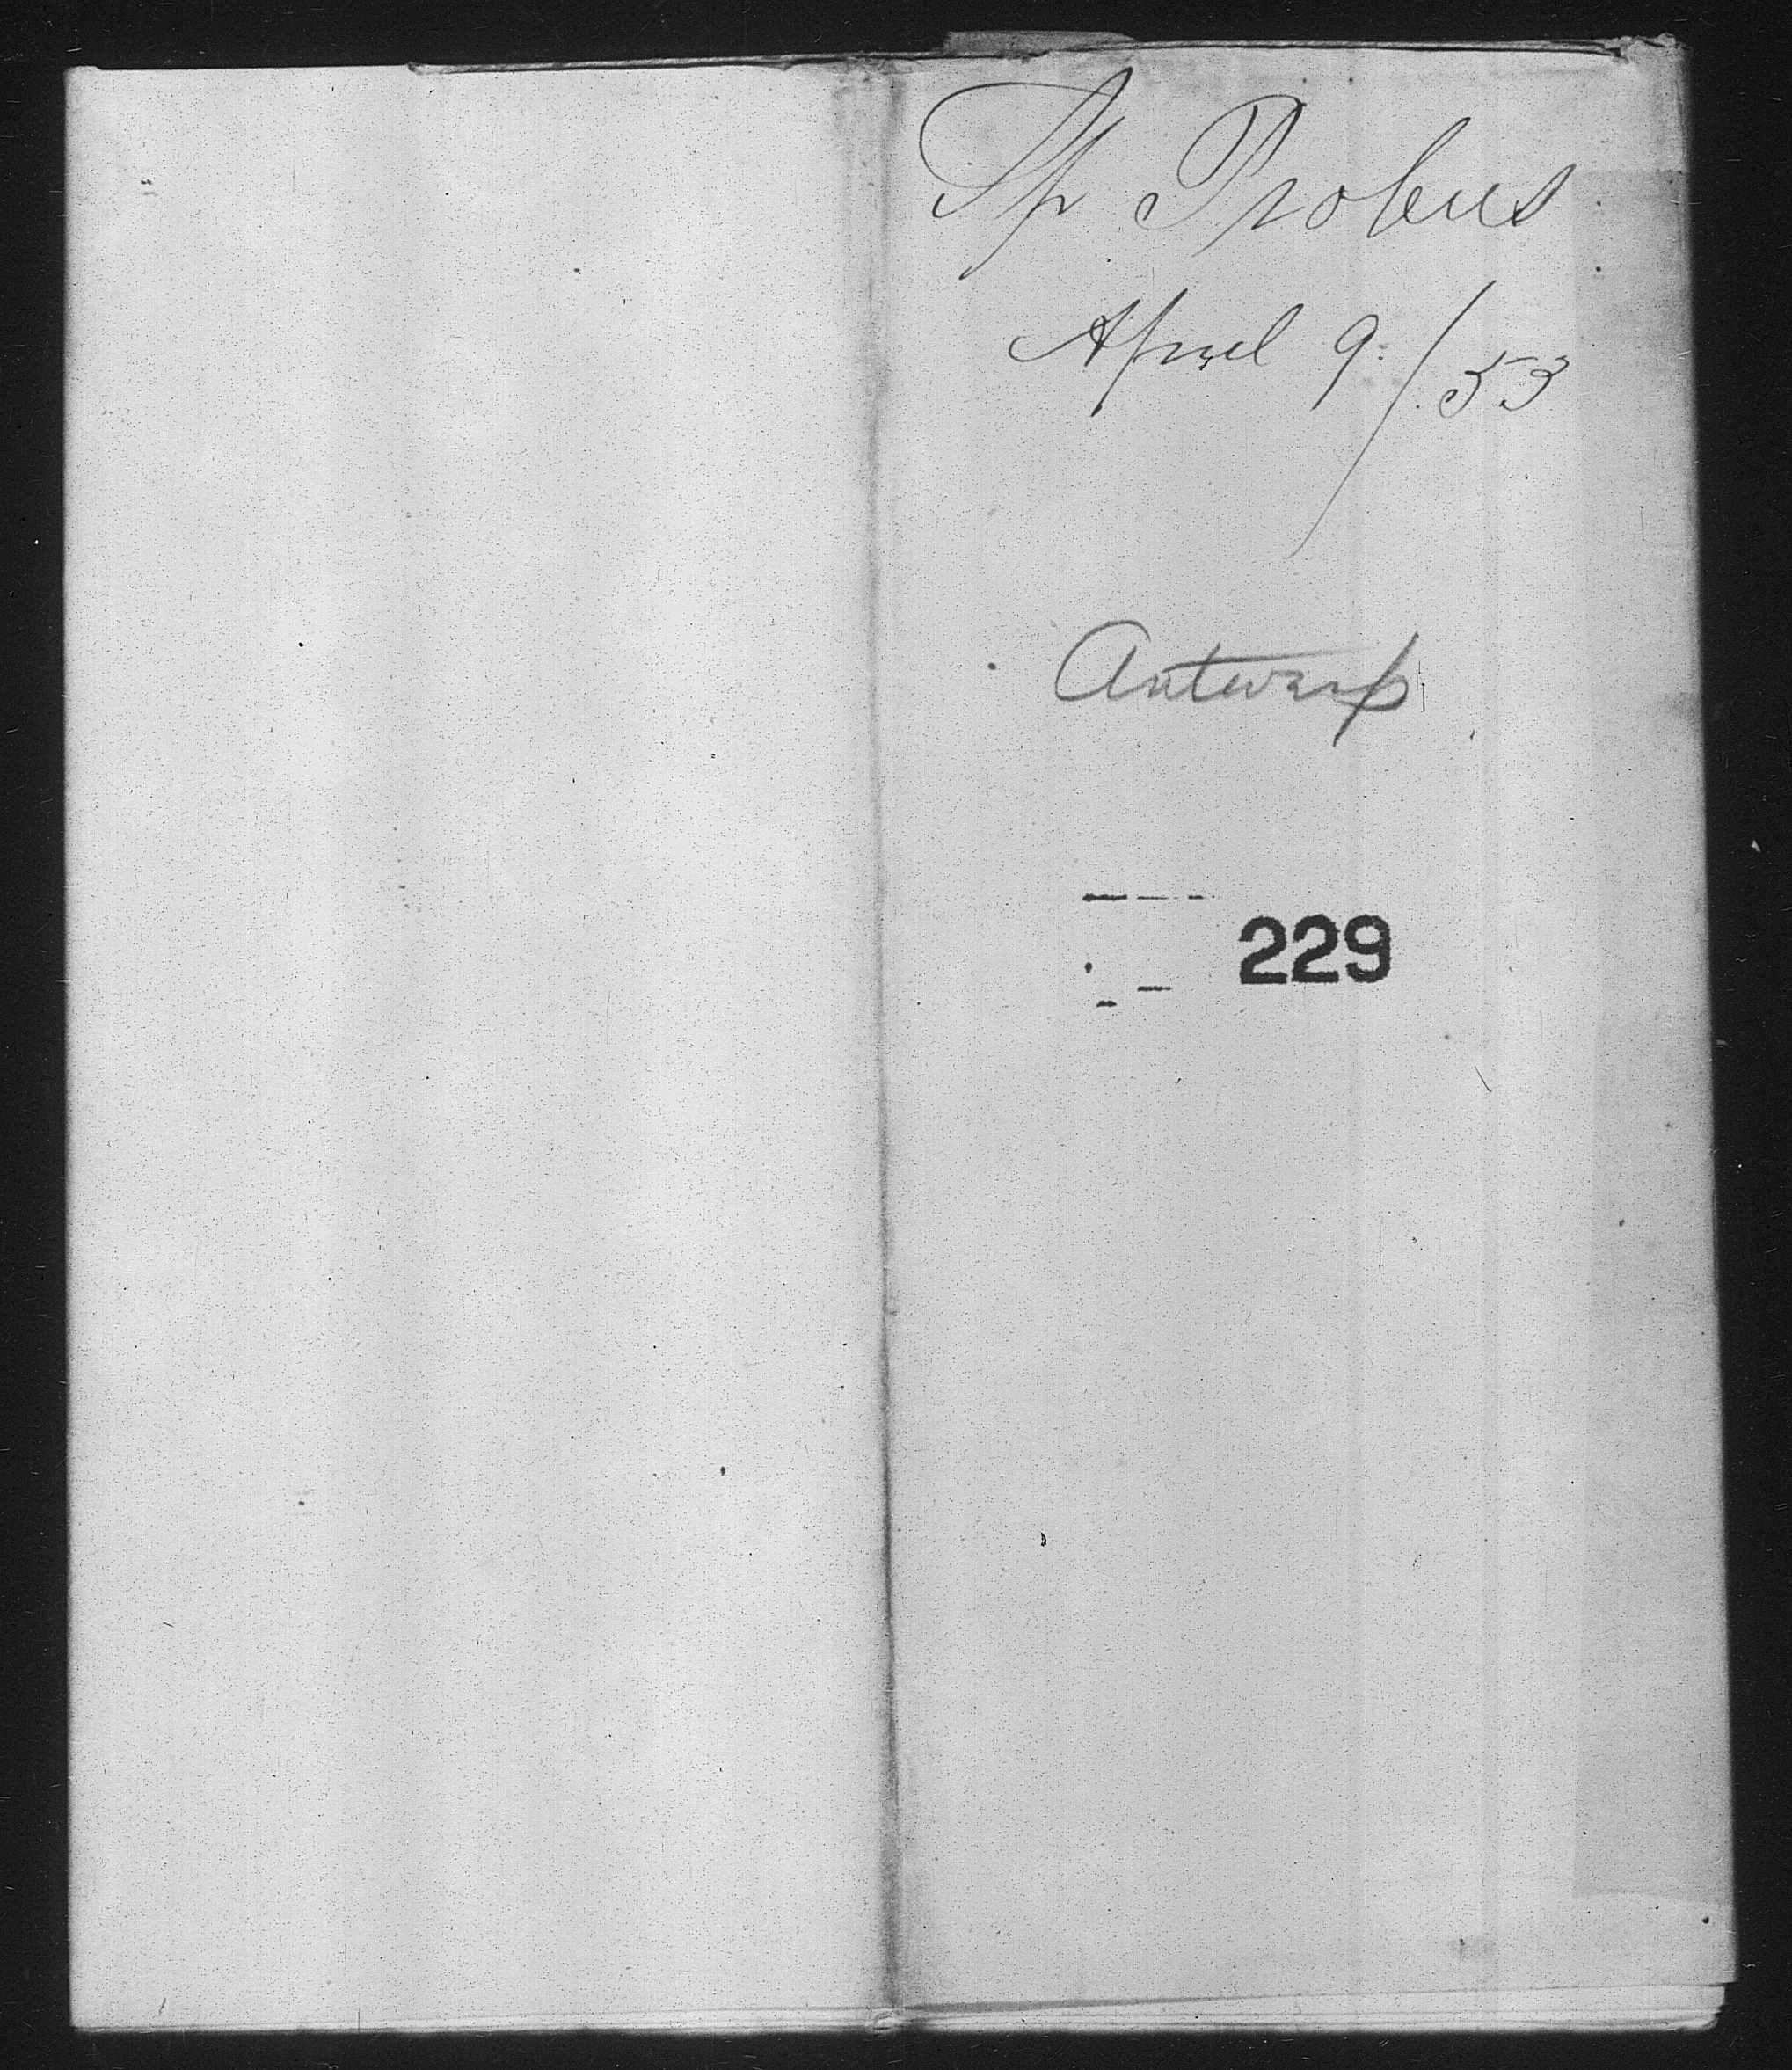 Sh Probus
April 9./53
Antwerp
229